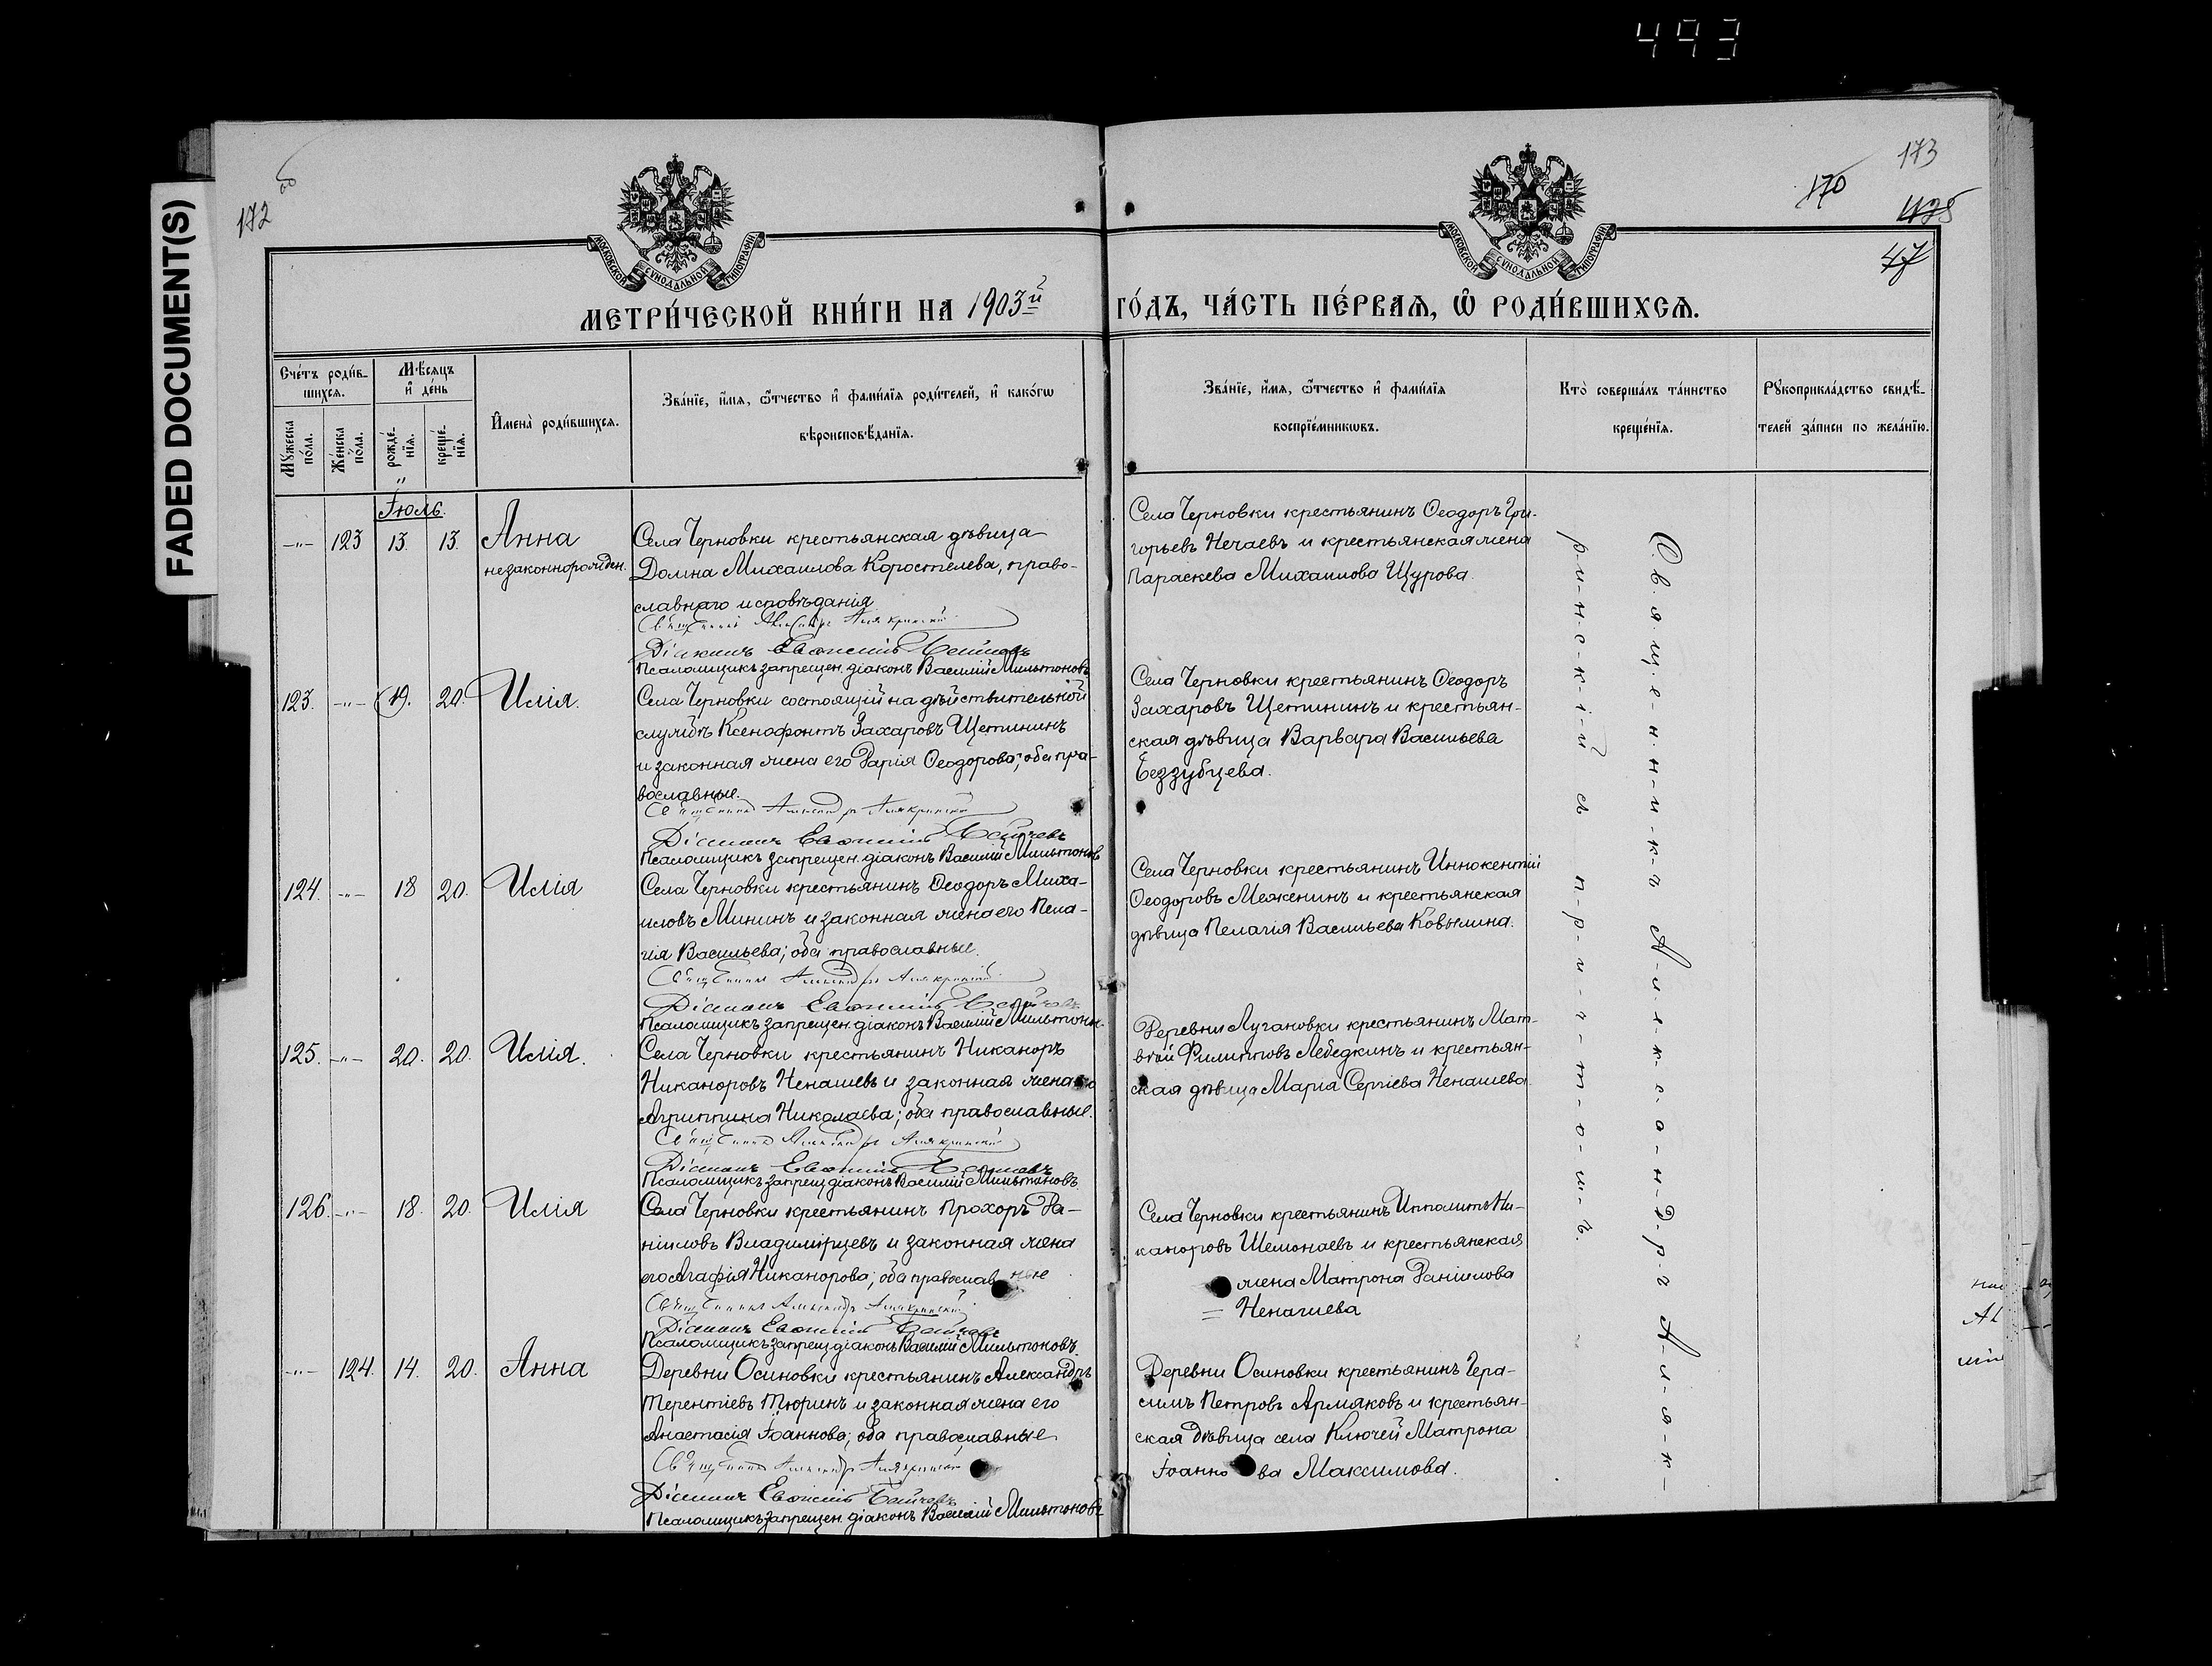 493
FADED DOCUMENT(S)
172 об
173
170
47
МОСКОВСКОЙ СѴНОДАЛЬНОЙ ТИПОГРАФІИ
МОСКОВСКОЙ СѴНОДАЛЬНОЙ ТИПОГРАФІИ
МЕТРИ́ЧЕСКОЙ КНИ́ГИ НА 1903й ГО́ДЪ, ЧА́СТЬ ПЕ́РВАѦ, Ѡ҆ РОДИ́ВШИХСѦ.
Сче́тъ роди́вшихсѧ.
Мꙋ́жеска по́ла.
Же́нска по́ла.
Мѣ́сѧцъ и҆ де́нь
рожде́нїѧ.
креще́нїѧ.
И҆мена̀ роди́вшихсѧ.
Зва́нїе, и҆́мѧ, ѻ҆́тчество и҆ фами́лїѧ роди́телей, и҆ како́гѡ
вѣроисповѣ́данїѧ.
Зва́нїе, и҆́мѧ, ѻ҆́тчество и҆ фами́лїѧ
воспрїе́мникѡвъ.
Кто̀ соверша́лъ та́инство
креще́нїѧ.
Рꙋкоприкла́дство свидѣ́-
телей за́писи по жела́нїю.
Іюль.
-"- 123 13. 13. Анна
незаконнорожден.
Села Черновки крестьянская дѣвица
Домна Михаилова Коростелева, право-
славнаго исповѣданія
Священникъ Александръ Алякринскій
Діаконъ Евѳимій
Псаломщикъ запрещен. діаконъ Василій Мильтоновъ
Села Черновки крестьянинъ Ѳеодоръ Гри-
горьевъ Нечаевъ и крестьянская жена
Параскева Михаилова Щурова.
123. -"- 19. 20. Илія.
Села Черновки состоящій на дѣйствительной
службѣ Ксенофонтъ Захаровъ Щетининъ
и законная жена его Дарія Ѳеодорова; оба пра-
вославные.
Священникъ Александръ Алякринскій
Діаконъ Евѳимій
Псаломщикъ запрещен. діаконъ Василій Мильтонов
Села Черновки крестьянинъ Ѳеодоръ
Захаровъ Щетининъ и крестьян-
ская дѣвица Варвара Васильева
Беззубцева.
124. -"- 18 20. Илія
Села Черновки крестьянинъ Ѳеодоръ Миха-
иловъ Мининъ и законная жена его Пела-
гія Васильева; оба православные.
Священникъ Александръ Алякринскій
Діаконъ Евѳимій
Псаломщикъ запрещен. діаконъ Василій Мильтонов.
Села Черновки крестьянинъ Иннокентій
Ѳеодоровъ Меженинъ и крестьянская
дѣвица Пелагія Васильева Ковылина.
125. -"- 20. 20. Илія.
Села Черновки крестьянинъ Никаноръ
Никаноровъ Ненашевъ и законная жена его
Агриппина Николаева; оба православные.
Священникъ Александръ Алякринскій
Діаконъ Евѳимій
Псаломщикъ запрещ. діаконъ Василій Мильтоновъ
Деревни Лугановки крестьянинъ Мат-
вѣй Филипповъ Лебедкинъ и крестьян-
ская дѣвица Марія Сергіева Ненашева
126. -"- 18. 20. Илія
Села Черновки крестьянинъ Прохоръ Да-
ніиловъ Владимірцевъ и законная жена
его Агафія Никанорова; оба православные
Священникъ Александръ Алякринскій
Діаконъ Евѳимій
Псаломщикъ запрещ. діаконъ Василій Мильтоновъ.
Села Черновки крестьянинъ Ипполитъ Ни-
каноровъ Шемонаевъ и крестьянская
жена Матрона Даніилова
= Ненашева
-"- 124. 14. 20. Анна
Деревни Осиновки крестьянинъ Александръ
Терентіевъ Тюринъ и законная жена его
Анастасія Іоаннова; оба православные
Священникъ Александръ Алякринскій
Діаконъ Евѳимій
Псаломщикъ запрещен. діаконъ Василій Мильтоновъ
Деревни Осиновки крестьянинъ Гера-
симъ Петровъ Армяковъ и крестьян-
ская дѣвица села Ключей Матрона
Іоаннова Максимова.
С.в.я.щ.е.н.н.и.к.ъ А-л-е-к-с-а-н-д-р-ъ А-л-я-к-
р-и-н-с-к-і-й с п-р-и-ч-т-о-м-ъ.